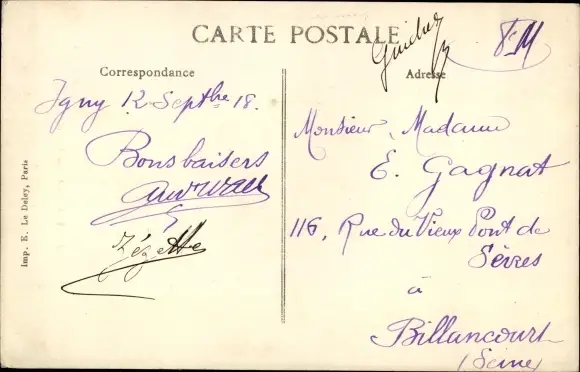 CARTE POSTALE
F.M
Correspondance
Adresse
Igny 12 Septbre 18.
Bons baisers
Zézette
Monsieur, Madame
E. Gagnat
116, Rue du Vieux Pont de
Sèvres
à
Billancourt
(Seine)
Imp. E. Le Deley, Paris